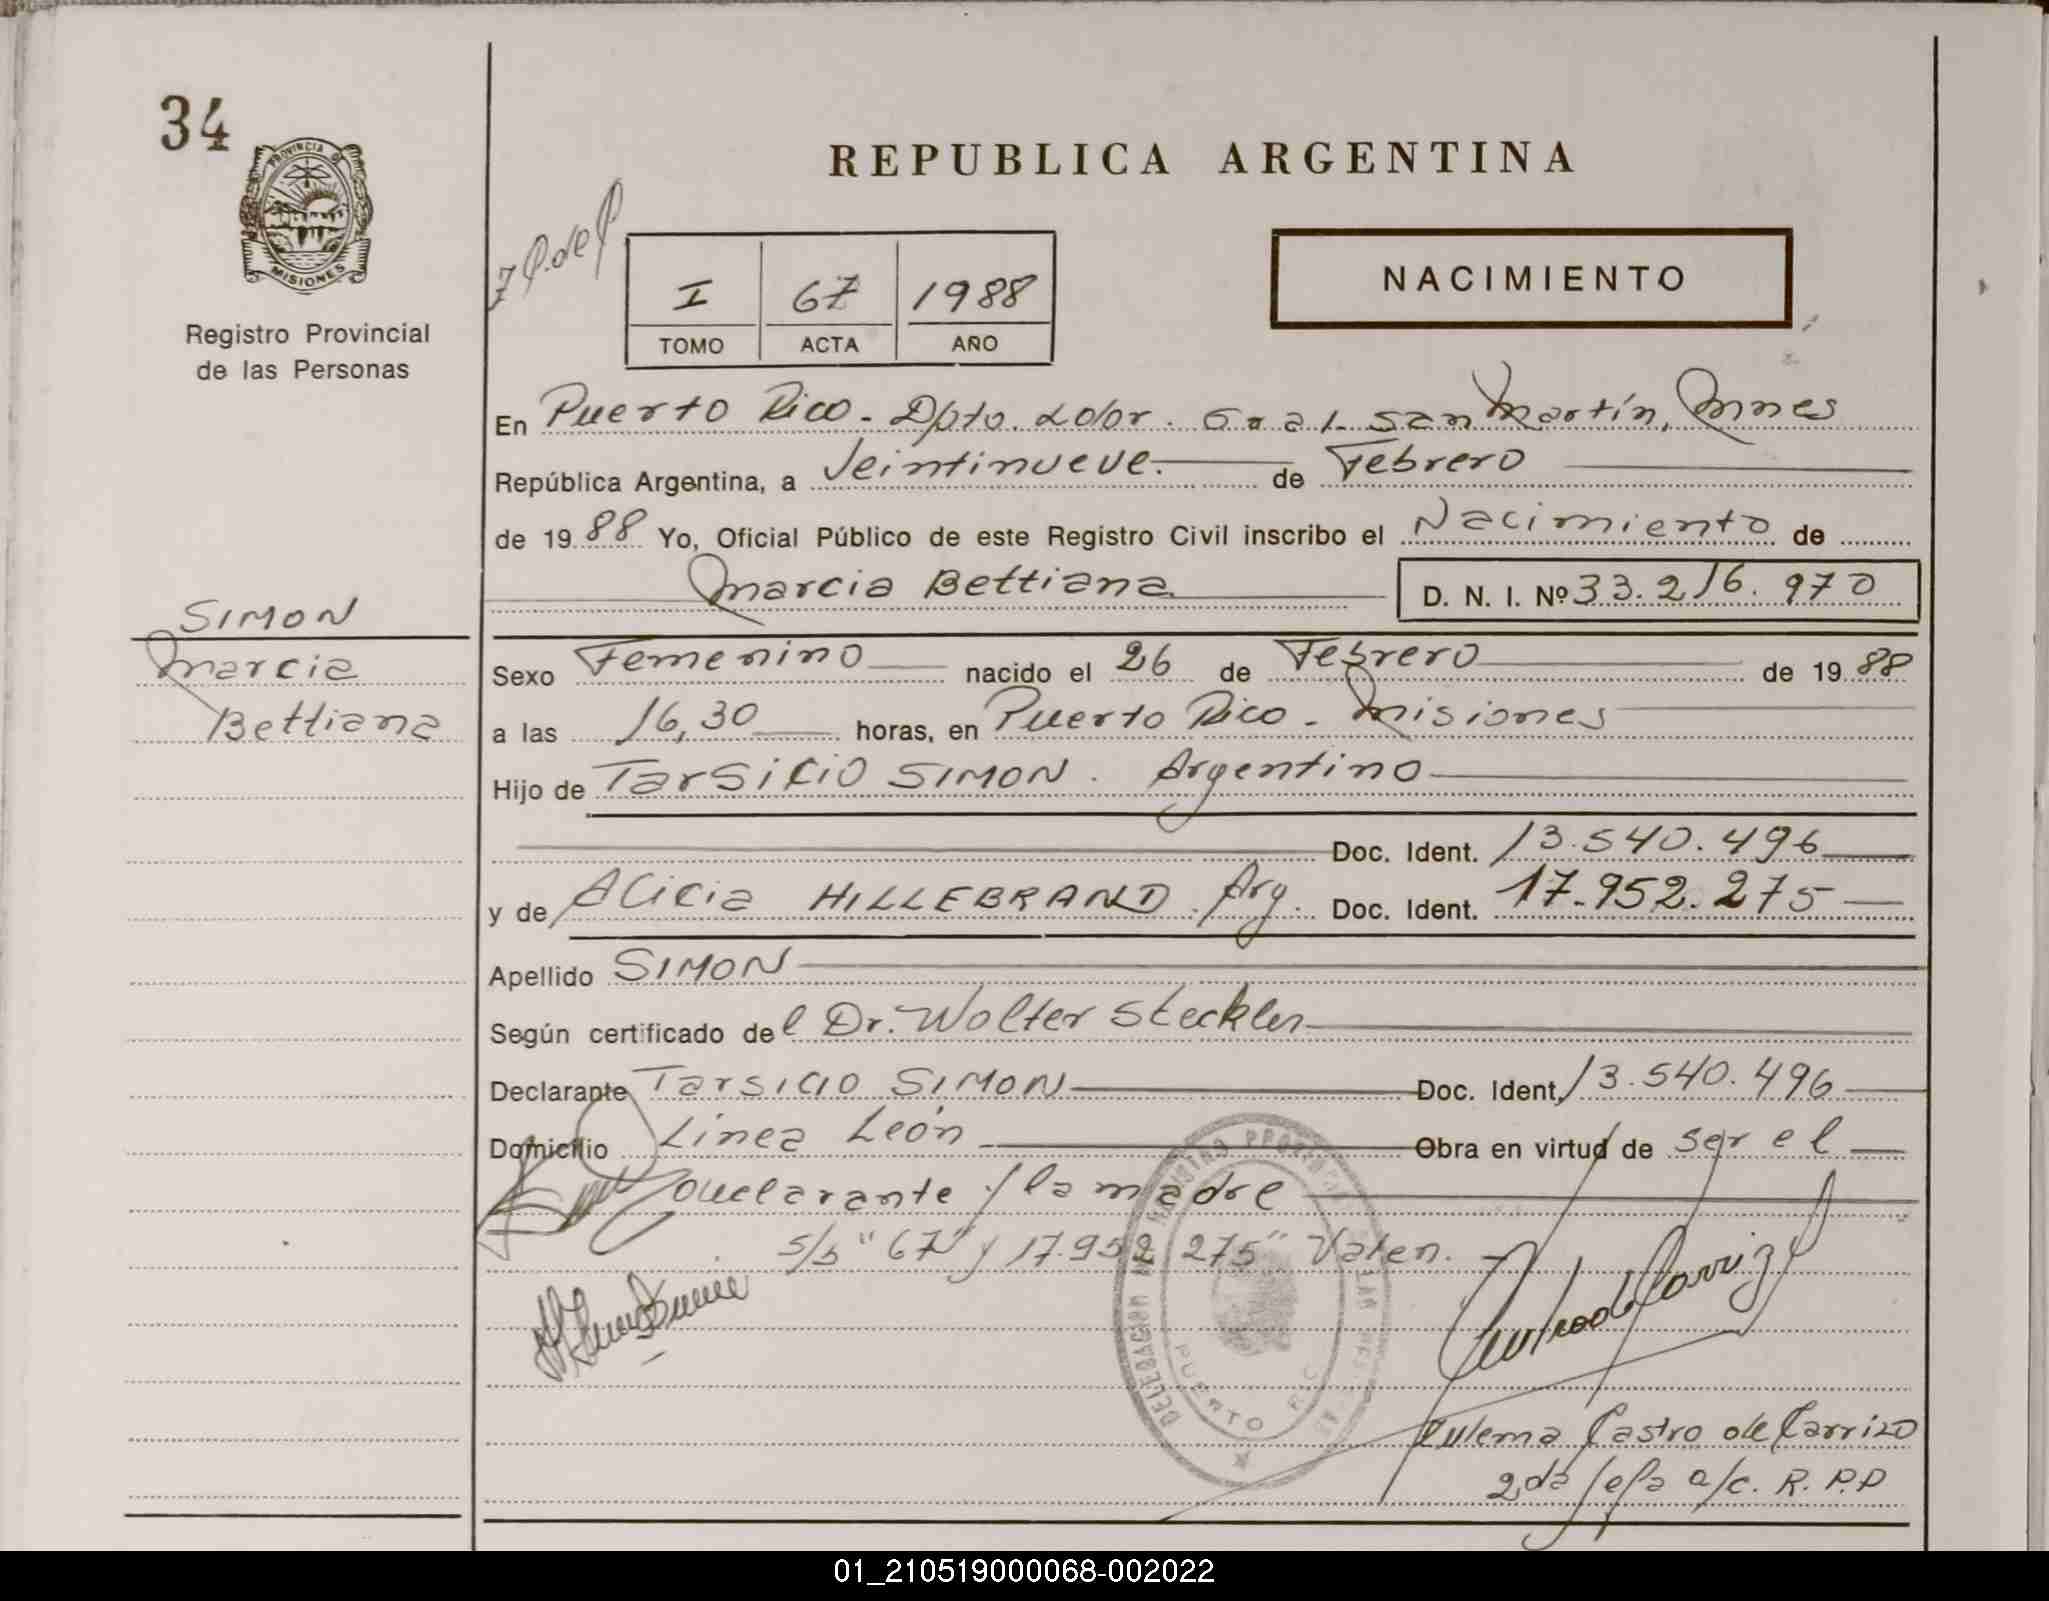 34
PROVINCIA DE
MISIONES
Registro Provincial
de las Personas
REPUBLICA ARGENTINA
NACIMIENTO
I 67 1988
TOMO ACTA AÑO
En Puerto Rico - Dpto. Ldor. Gral. San Martín, Mnes
República Argentina, a Veintinueve. de Febrero
de 1988 Yo, Oficial Público de este Registro Civil inscribo el Nacimiento de
Marcia Bettiana D. N. I. Nº 33.216.970
SIMON
Marcia
Bettiana
Sexo Femenino nacido el 26 de Febrero de 1988
a las 16,30 horas, en Puerto Rico - Misiones
Hijo de Tarsicio SIMON. Argentino
Doc. Ident. 13.540.496
y de Alicia HILLEBRAND. Arg. Doc. Ident. 17.952.275
Apellido SIMON
Según certificado del Dr. Wolter Steckler
Declarante Tarsicio SIMON Doc. Ident. 13.540.496
Domicilio Linea León Obra en virtud de ser el
declarante y la madre
s/b "67" y 17.952.275" Valen.
DELEGACION DEL REGISTRO PROVINCIAL DE LAS PERSONAS
PUERTO RICO
Zulema Castro de Carrizo
2da Jefa a/c. R.P.P
01_210519000068-002022